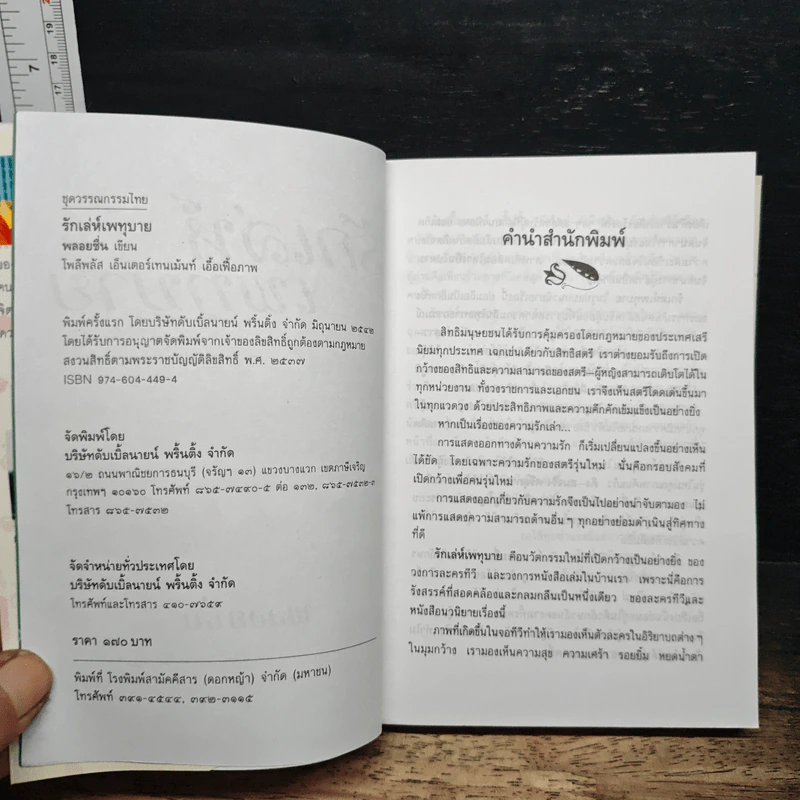 ชุดวรรณกรรมไทย
รักเล่ห์เพทุบาย
พลอยชื่น เขียน
โพลีพลัส เอ็นเตอร์เทนเม้นท์ เอื้อเฟื้อภาพ
พิมพ์ครั้งแรก โดยบริษัทดับเบิ้ลนายน์ พริ้นติ้ง จำกัด มิถุนายน ๒๕๔๒
โดยได้รับการอนุญาตจัดพิมพ์จากเจ้าของลิขสิทธิ์ถูกต้องตามกฎหมาย
สงวนสิทธิ์ตามพระราชบัญญัติลิขสิทธิ์ พ.ศ. ๒๕๓๗
ISBN 974-604-449-4
จัดพิมพ์โดย
บริษัทดับเบิ้ลนายน์ พริ้นติ้ง จำกัด
๑๖/๒ ถนนพาณิชยการธนบุรี (จรัญฯ ๑๓) แขวงบางแวก เขตภาษีเจริญ
กรุงเทพฯ ๑๐๑๖๐ โทรศัพท์ ๘๖๕-๗๔๙๐-๕ ต่อ ๑๓๒, ๘๖๕-๗๕๓๒-๓
โทรสาร ๘๖๕-๗๕๓๒
จัดจำหน่ายทั่วประเทศโดย
บริษัทดับเบิ้ลนายน์ พริ้นติ้ง จำกัด
โทรศัพท์และโทรสาร ๔๑๐-๗๖๕๙
ราคา ๑๗๐ บาท
พิมพ์ที่ โรงพิมพ์สามัคคีสาร (ดอกหญ้า) จำกัด (มหาชน)
โทรศัพท์ ๓๙๑-๔๕๔๔, ๓๙๒-๓๑๑๕
คำนำสำนักพิมพ์
สิทธิมนุษยชนได้รับการคุ้มครองโดยกฎหมายของประเทศเสรี
นิยมทุกประเทศ เฉกเช่นเดียวกับสิทธิสตรี เราต่างยอมรับถึงการเปิด
กว้างของสิทธิและความสามารถของสตรี–ผู้หญิงสามารถเติบโตได้ใน
ทุกหน่วยงาน ทั้งวงราชการและเอกชน เราจึงเห็นสตรีโดดเด่นขึ้นมา
ในทุกแวดวง ด้วยประสิทธิภาพและความคึกคักเข้มแข็งเป็นอย่างยิ่ง
หากเป็นเรื่องของความรักเล่า...
การแสดงออกทางด้านความรัก ก็เริ่มเปลี่ยนแปลงขึ้นอย่างเห็น
ได้ชัด โดยเฉพาะความรักของสตรีรุ่นใหม่ นั่นคือกรอบสังคมที่
เปิดกว้างเพื่อคนรุ่นใหม่
การแสดงออกเกี่ยวกับความรักจึงเป็นไปอย่างน่าจับตามอง ไม่
แพ้การแสดงความสามารถด้านอื่น ๆ ทุกอย่างย่อมดำเนินสู่ทิศทาง
ที่ดี
รักเล่ห์เพทุบาย คือนวัตกรรมใหม่ที่เปิดกว้างเป็นอย่างยิ่ง ของ
วงการละครทีวี และวงการหนังสือเล่มในบ้านเรา เพราะนี่คือการ
รังสรรค์ที่สอดคล้องและกลมกลืนเป็นหนึ่งเดียว ของละครทีวีและ
หนังสือนวนิยายเรื่องนี้
ภาพที่เกิดขึ้นในจอทีวีทำให้เรามองเห็นตัวละครในอิริยาบถต่าง ๆ
ในมุมกว้าง เรามองเห็นความสุข ความเศร้า รอยยิ้ม หยดน้ำตา